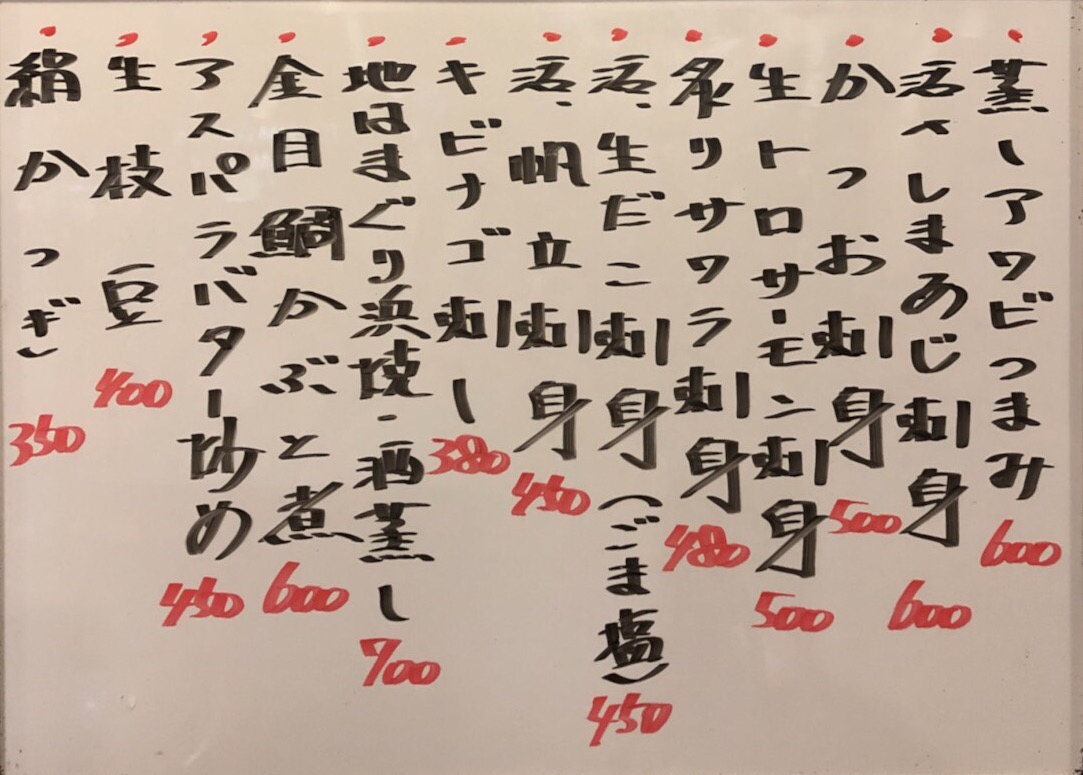 蒸しアワビつまみ 600
活〆しまあじ刺身 600
かつお刺身 500
生トロサーモン刺身 500
炙りサワラ刺身 480
活、生だこ刺身(ごま塩) 450
活、帆立刺身 450
キビナゴ刺し 380
地はまぐり浜焼・酒蒸し 700
金目鯛かぶと煮 600
アスパラバター炒め 450
生枝豆 400
絹かつぎ 350